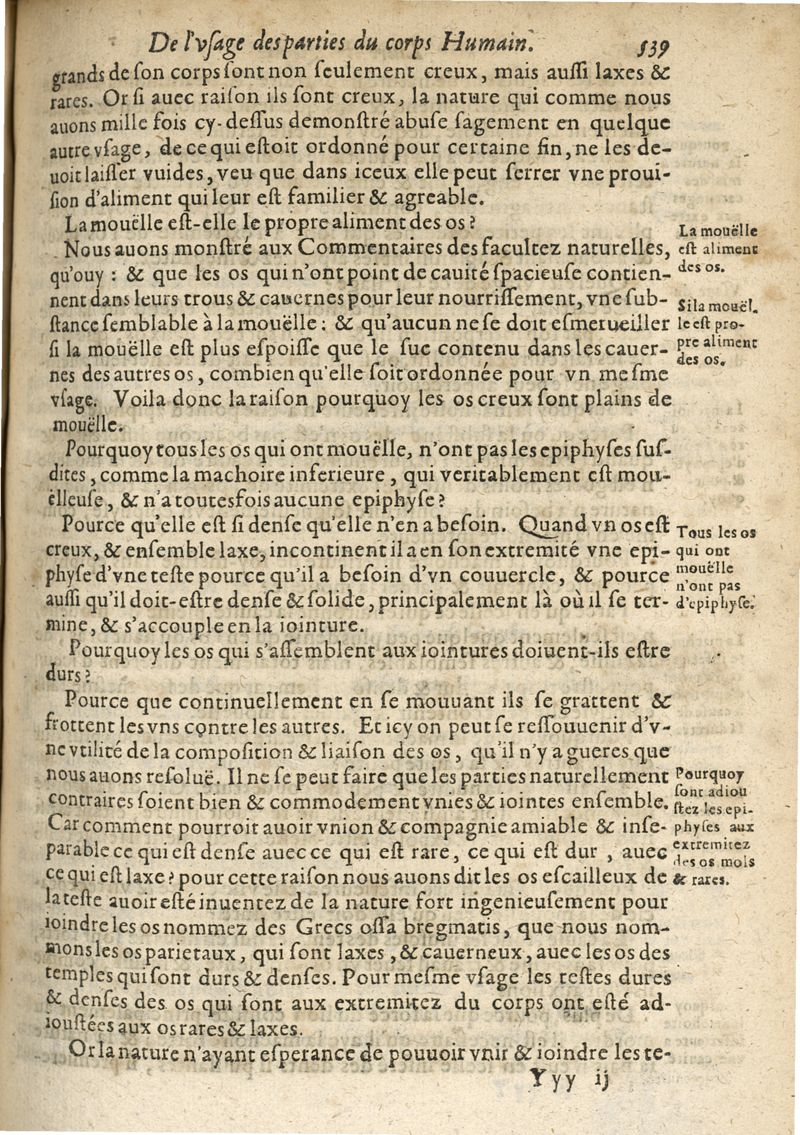 De l'vſage des parties du corps Humain. 539
grands de ſon corps ſont non ſeulement creux, mais auſſi laxes &
rares. Or ſi auec raiſon ils ſont creux, la nature qui comme nous
auons mille fois cy-deſſus demonſtré abuſe ſagement en quelque
autre vſage, de ce qui eſtoit ordonné pour certaine fin, ne les de-
uoit laiſſer vuides, veu que dans iceux elle peut ſerrer vne proui-
ſion d'aliment qui leur eſt familier & agreable.
La mouëlle eſt-elle le propre aliment des os?
Nous auons monſtré aux Commentaires des facultez naturelles,
qu'ouy : & que les os qui n'ont point de cauité ſpacieuſe contien-
nent dans leurs trous & cauernes pour leur nourriſſement, vne ſub-
ſtance ſemblable à la mouëlle : & qu'aucun ne ſe doit eſmerueiller
ſi la mouëlle eſt plus eſpoiſſe que le ſuc contenu dans les cauer-
nes des autres os, combien qu'elle ſoit ordonnée pour vn meſme
vſage. Voila donc la raiſon pourquoy les os creux ſont plains de
mouëlle.
La mouëlle
eſt aliment
des os.
Si la mouël.
le eſt pro-
pre aliment
des os.
Pourquoy tous les os qui ont mouëlle, n'ont pas les epiphyſes ſuſ-
dites, comme la machoire inferieure, qui veritablement eſt mou-
ëlleuſe, & n'a toutesfois aucune epiphyſe?
Pource qu'elle eſt ſi denſe qu'elle n'en a beſoin. Quand vn os eſt
creux, & enſemble laxe, incontinent il a en ſon extremité vne epi-
phyſe d'vne teſte pource qu'il a beſoin d'vn couuercle, & pource
auſſi qu'il doit-eſtre denſe & ſolide, principalement là où il ſe ter-
mine, & s'accouple en la iointure.
Tous les os
qui ont
mouëlle
n'ont pas
d'epiphyſe.
Pourquoy les os qui s'aſſemblent aux iointures doiuent-ils eſtre
durs?
Pource que continuellement en ſe mouuant ils ſe grattent &
frottent les vns contre les autres. Et icy on peut ſe reſſouuenir d'v-
ne vtilité de la compoſition & liaiſon des os, qu'il n'y a gueres que
nous auons reſoluë. Il ne ſe peut faire que les parties naturellement
contraires ſoient bien & commodement vnies & iointes enſemble.
Car comment pourroit auoir vnion & compagnie amiable & inſe-
parable ce qui eſt denſe auec ce qui eſt rare, ce qui eſt dur, auec
ce qui eſt laxe? pour cette raiſon nous auons dit les os eſcailleux de
la teſte auoir eſté inuentez de la nature fort ingenieuſement pour
ioindre les os nommez des Grecs oſſa bregmatis, que nous nom-
mons les os parietaux, qui ſont laxes, & cauerneux, auec les os des
temples qui ſont durs & denſes. Pour meſme vſage les teſtes dures
& denſes des os qui ſont aux extremitez du corps ont eſté ad-
iouſtées aux os rares & laxes.
Pourquoy
ſont adiou
ſtez les epi-
phyſes aux
extremitez
des os mols
& rares.
Or la nature n'ayant eſperance de pouuoir vnir & ioindre les te-
Yyy ij